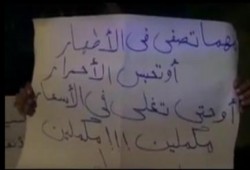 مهما تصفى فى الأخبار
أو تحبس الأحرار
أو حتى تغلى فى الأسعار
مكملين !!! مكملين